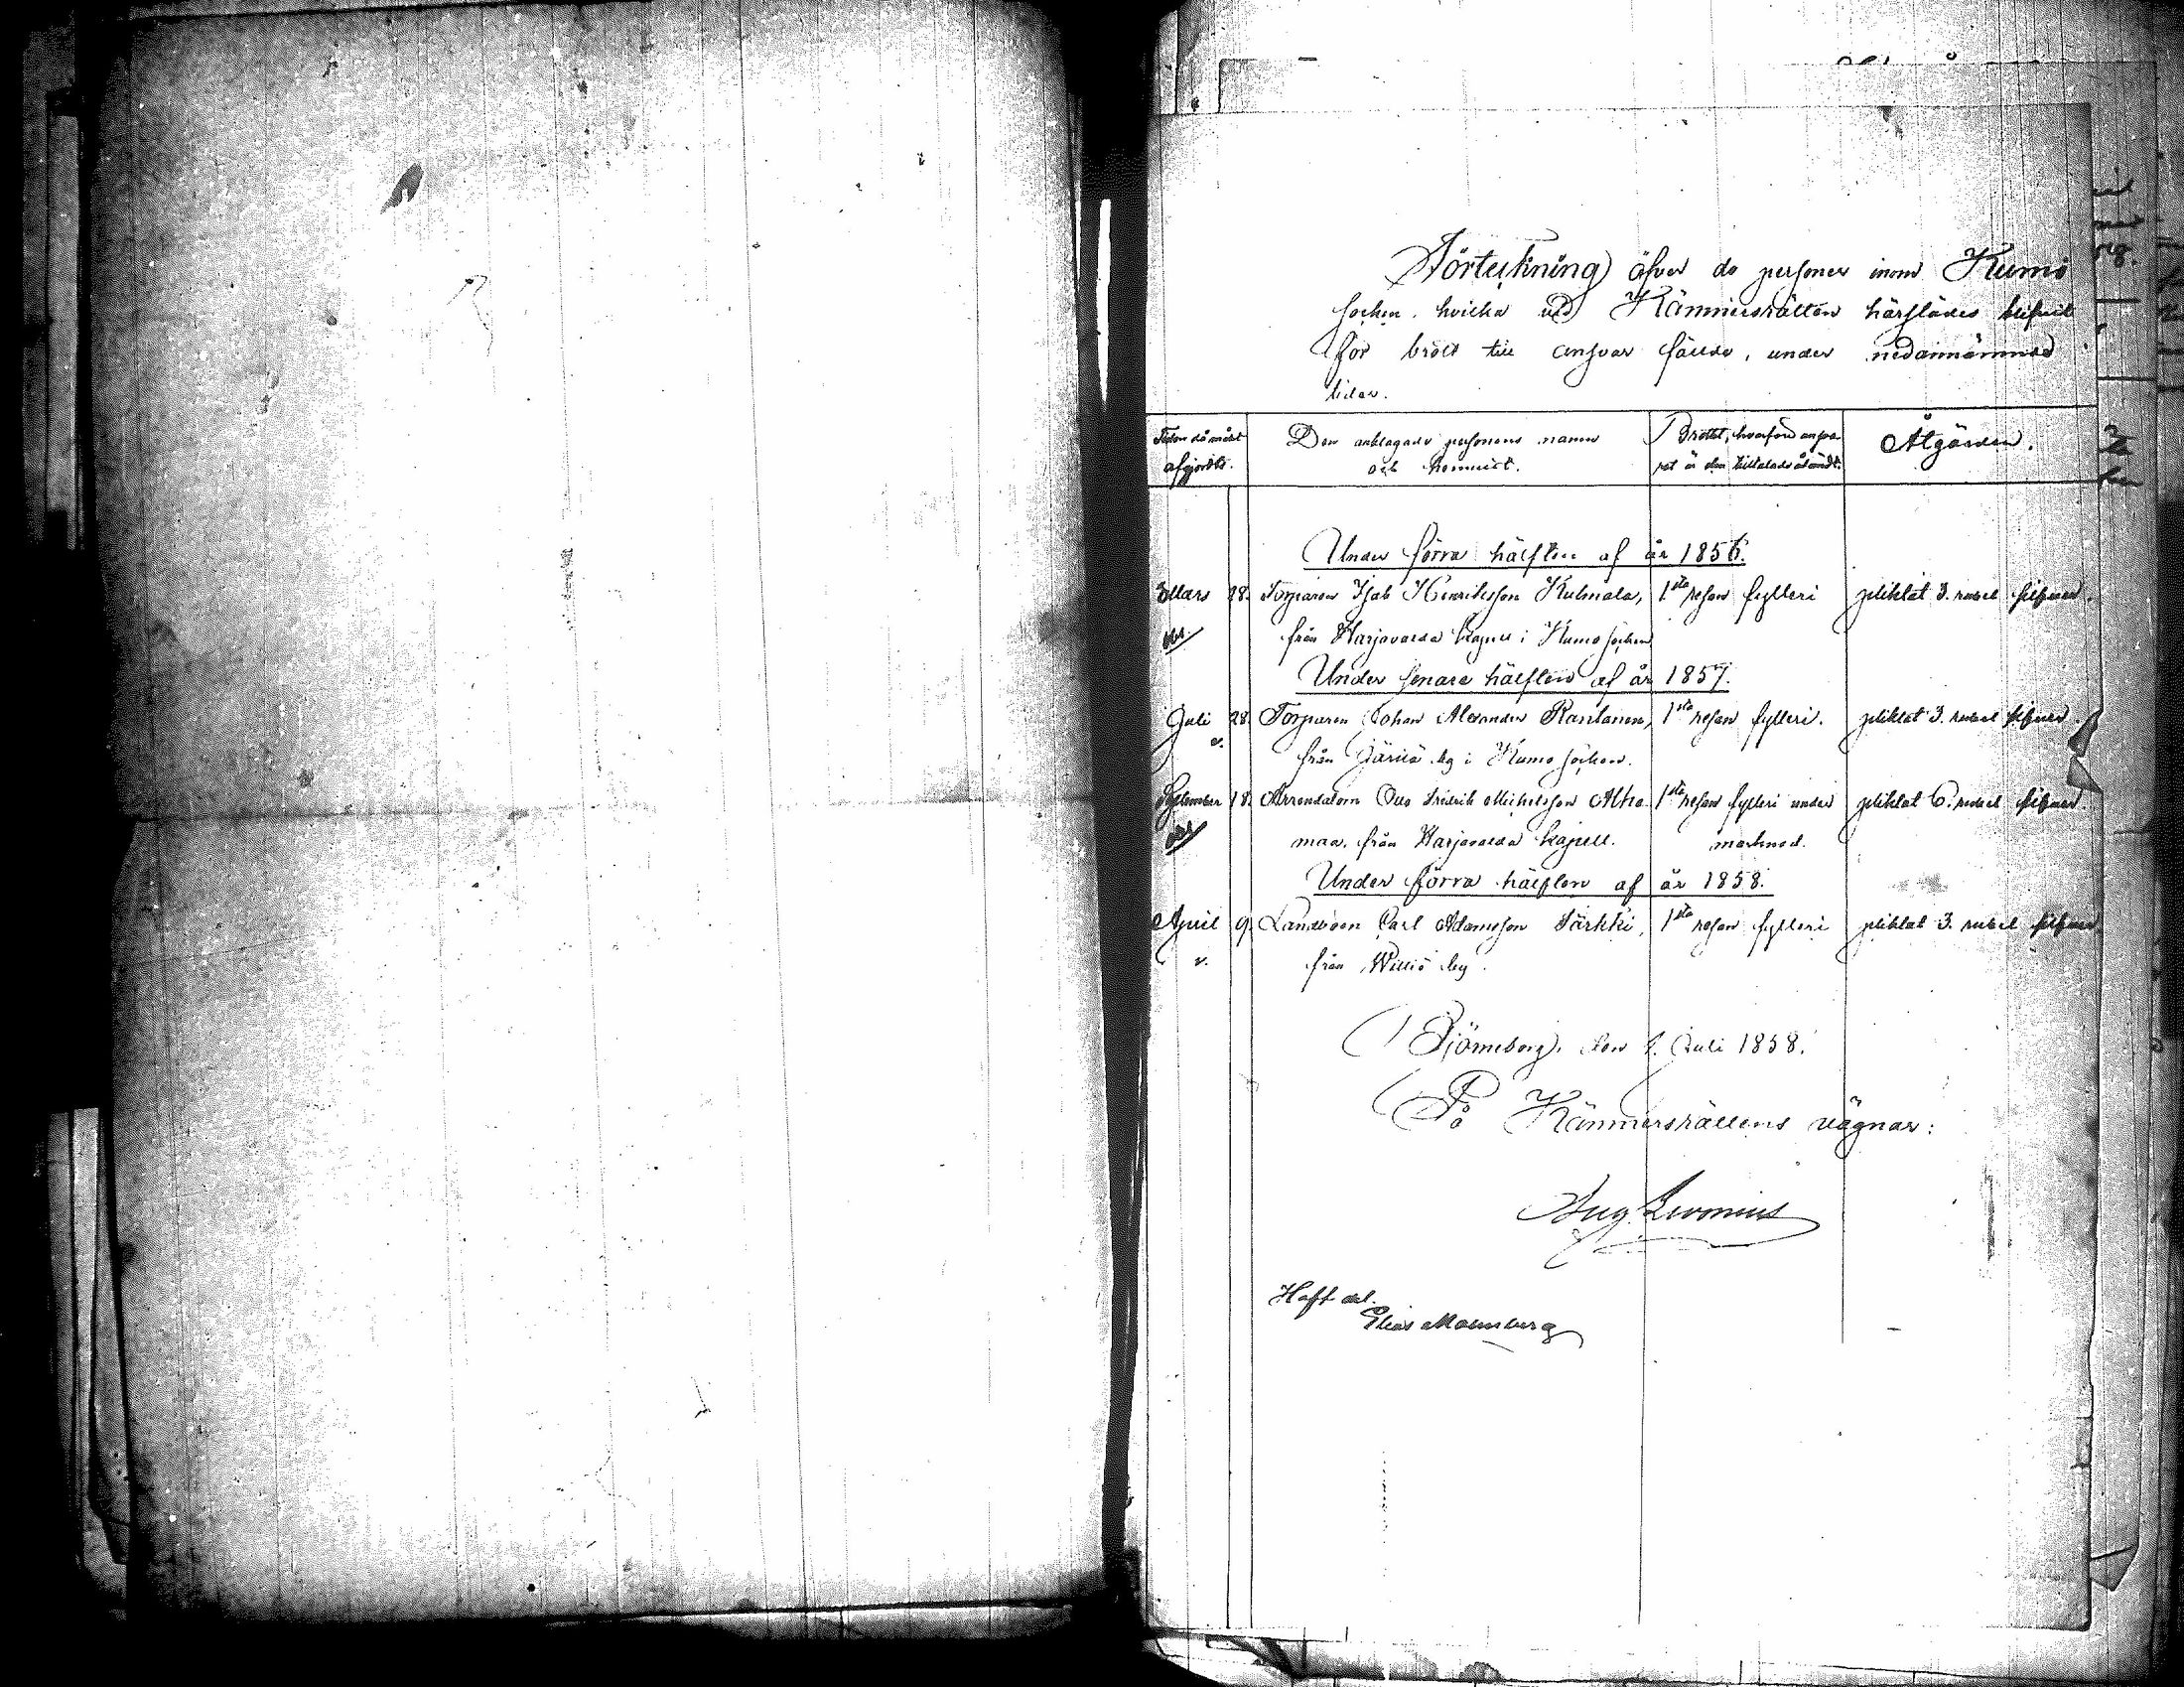 Förteckning öfver de personer inom Kumo
socken, hvilka vid Kämnersrätten härstädes blifvit
för brott till ansvar fällde, under nedannämnde
tider.
Tiden då målet afgjordts. Den anklagade personens namn och hemvist. Brottet, hvarföre ansvaret är den tilltalade ådömdt. Åtgärden.
Under förra hälften af år 1856.
Mars 28. Torparen Isak Henriksson Kulmala, 1sta resan fylleri pliktat 3. rubel silfver.
från Harjavalda kapell i Kumo socken
Under senare hälften af år 1857.
Juli 28. Torparen Johan Alexander Rantanen, 1sta resan fylleri. pliktat 3. rubel silfver.
v. från by i Kumo socken.
September 18. Arrendatorn Otto Fredrik Michelsson Alho 1sta resan fylleri under pliktat 6. rubel silfver.
maa, från Harjavalda kapell. marknad.
Under förra hälften af år 1858.
April 9. Landboen Carl Adamsson Särkki, 1sta resan fylleri pliktat 3. rubel silfver
v. från Williö by.
Björneborg, den 1. Juli 1858.
På Kämnersrättens vägnar:
Aug. Levonius
Haft del.
Elias Malmberg